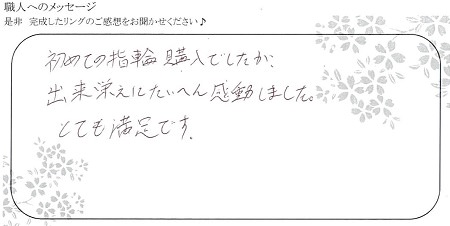 職人へのメッセージ
是非 完成したリングのご感想をお聞かせください♪
初めての指輪購入でしたが、
出来栄えにたいへん感動しました。
とても満足です。